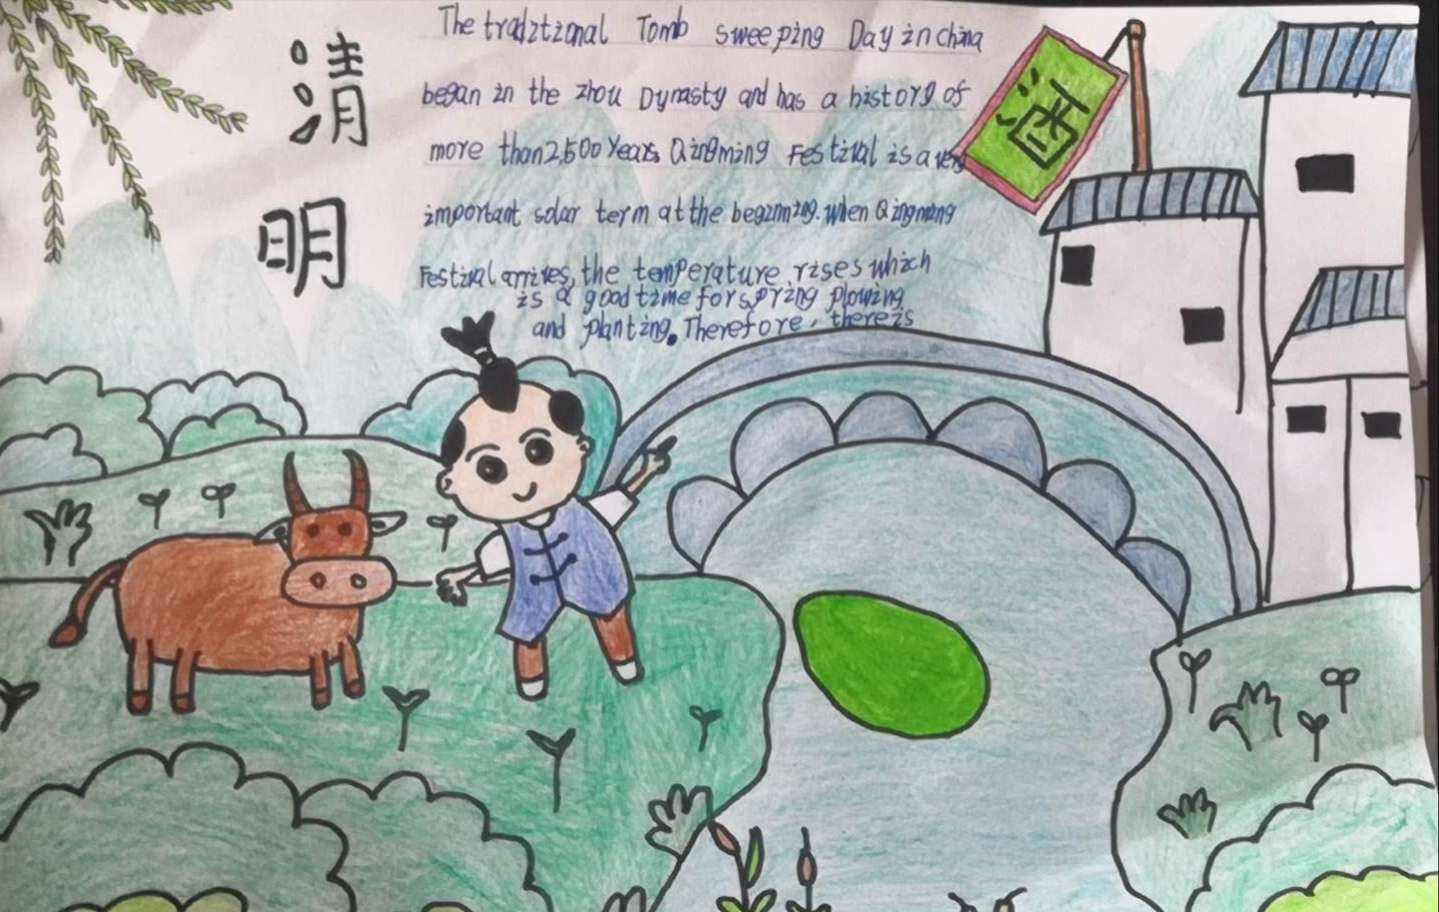 清
明
The traditional Tomb sweeping Day in china
began in the zhou Dynasty and has a history of
more than 2,500 Years, Qingming Festival is a very
important solar term at the beginning. when Qingming
Festival arrives, the temperature rises which
is a good time for spring plowing
and planting. Therefore, there is
酒